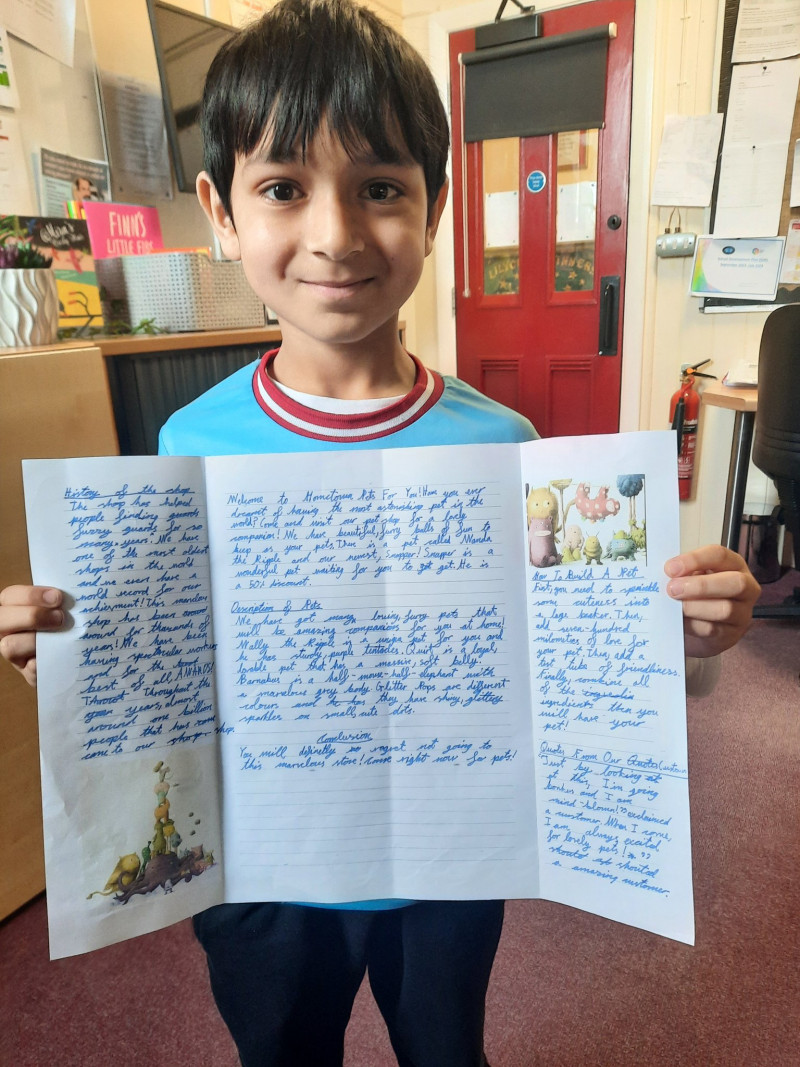 FINN'S
LITTLE FIRE
History of the shop
The shop has helped
people finding
furry guards for so
many years! We have
one of the most oldest
shops in the world
and we even have a
world record for our
achivment! This marvelous
shop has been around
around for thousands of
years! We have been
having spectacular workers
and for the
best of all, AWARDS!
Throout Throughout the
years, almost
around one billion
people that has
come to our shop. shop.
Welcome to Hometown Pets For You! Have you ever
dreamt of having the most astonishing pet in the
world? Come and visit our pet shop for a lovely
companion! We have beautiful, furry balls of fun to
keep as your pets. Thus, a pet called Wanda
the Ripple and our newest, Snapper! Snapper is a
wonderful pet waiting for you to get get. He is
a 50% discount.
Description of Pets
We have got many loving, furry pets that
will be amazing companions for you at home!
Wally the Ripple is a unique pet for you and
he has sturdy, purple tentacles. Quirt is a loyal,
lovable pet that has a massive, soft belly.
Barnabus is a half-mouse-half-elephant with
a marvelous grey body. Glitter Pops are different
colours and to has they have shiny, glittery
sparkles on small, cute dots.
Conclusion
You will definetly so regret not going to
this marvelous store! Come right now for pets!
How To Build A Pet
First, you need to sprinkle
some cuteness into
a large beaker. Then,
add seven hundred
milometres of love for
your pet. Then, add a
test tube of friendliness.
Finally, combine all
of the
ingredients then you
will have your
pet!
Quotes From Our Customers
"Just by looking at
at this, I'm going
bonkers and I am
mind blown!" exclaimed
a customer. "When I come,
I am always excited
for lovely pets!"
shouted
a amazing customer.